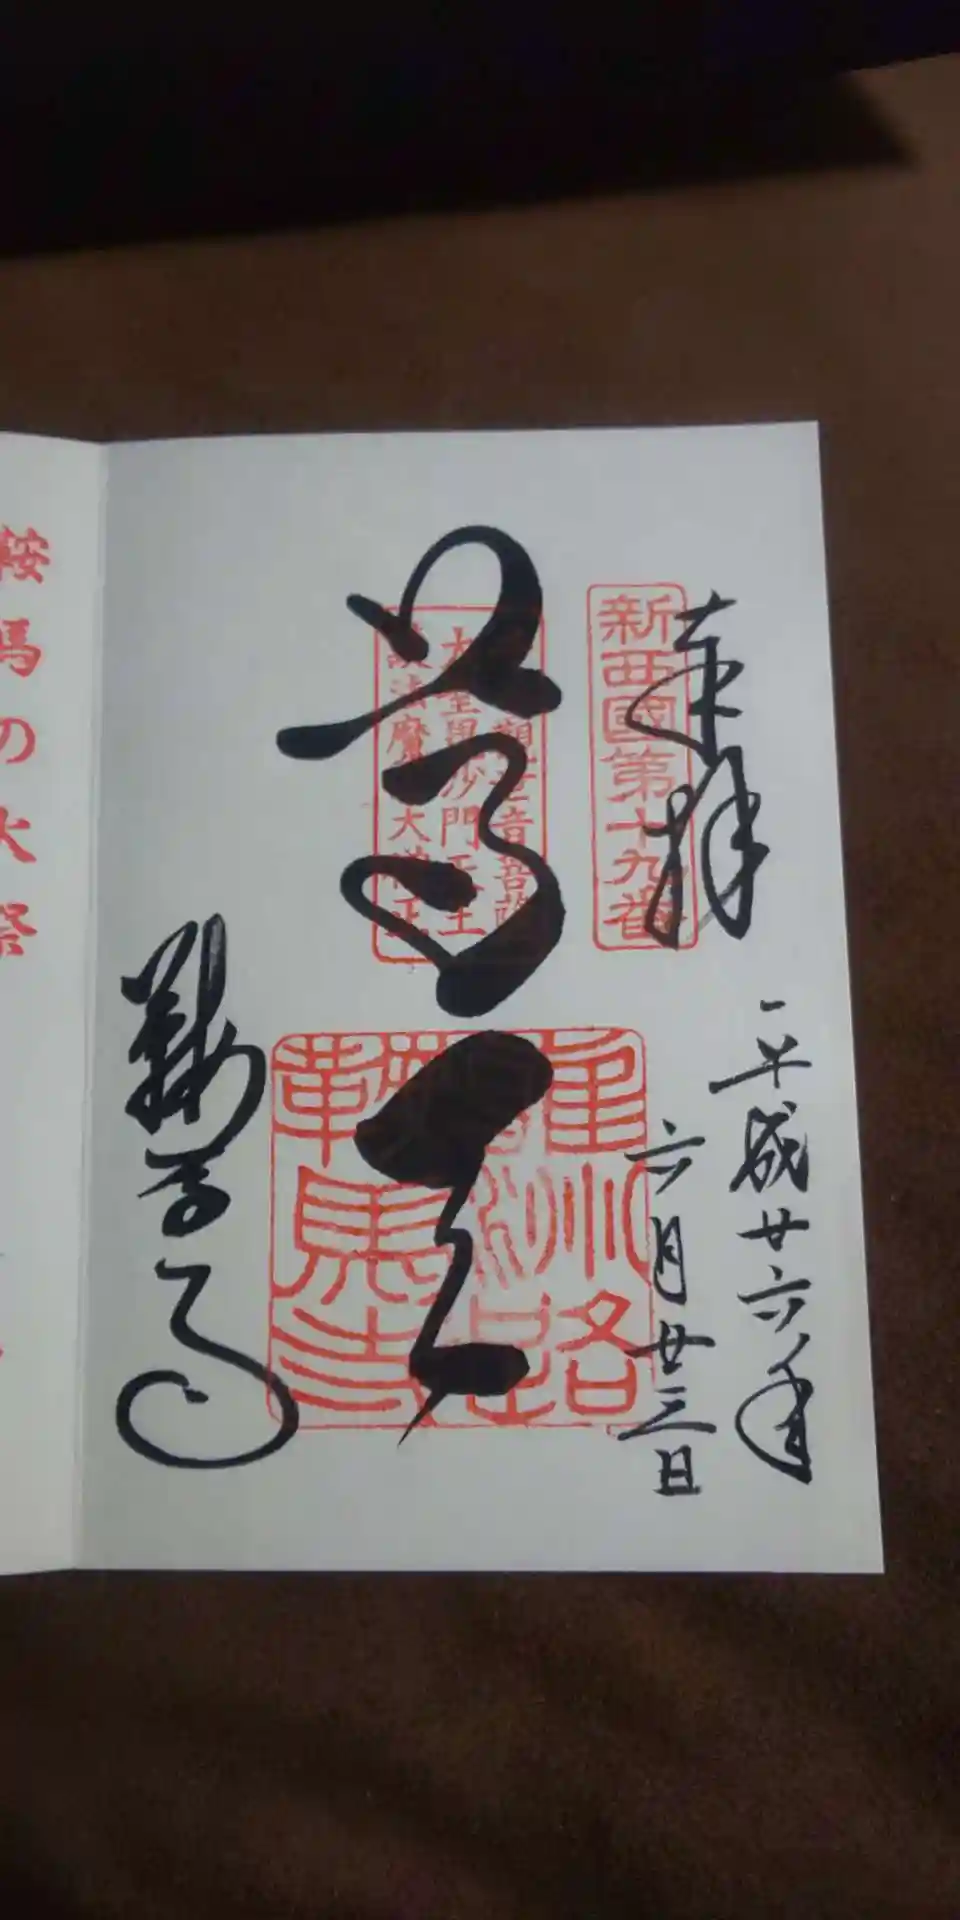 奉拝
新西國第十九番
平成廿六年
六月廿三日
尊天
觀世音菩薩
大聖毘沙門天王
護法魔王大僧正
雍州路
鞍馬寺
鞍馬寺
鞍馬の火祭